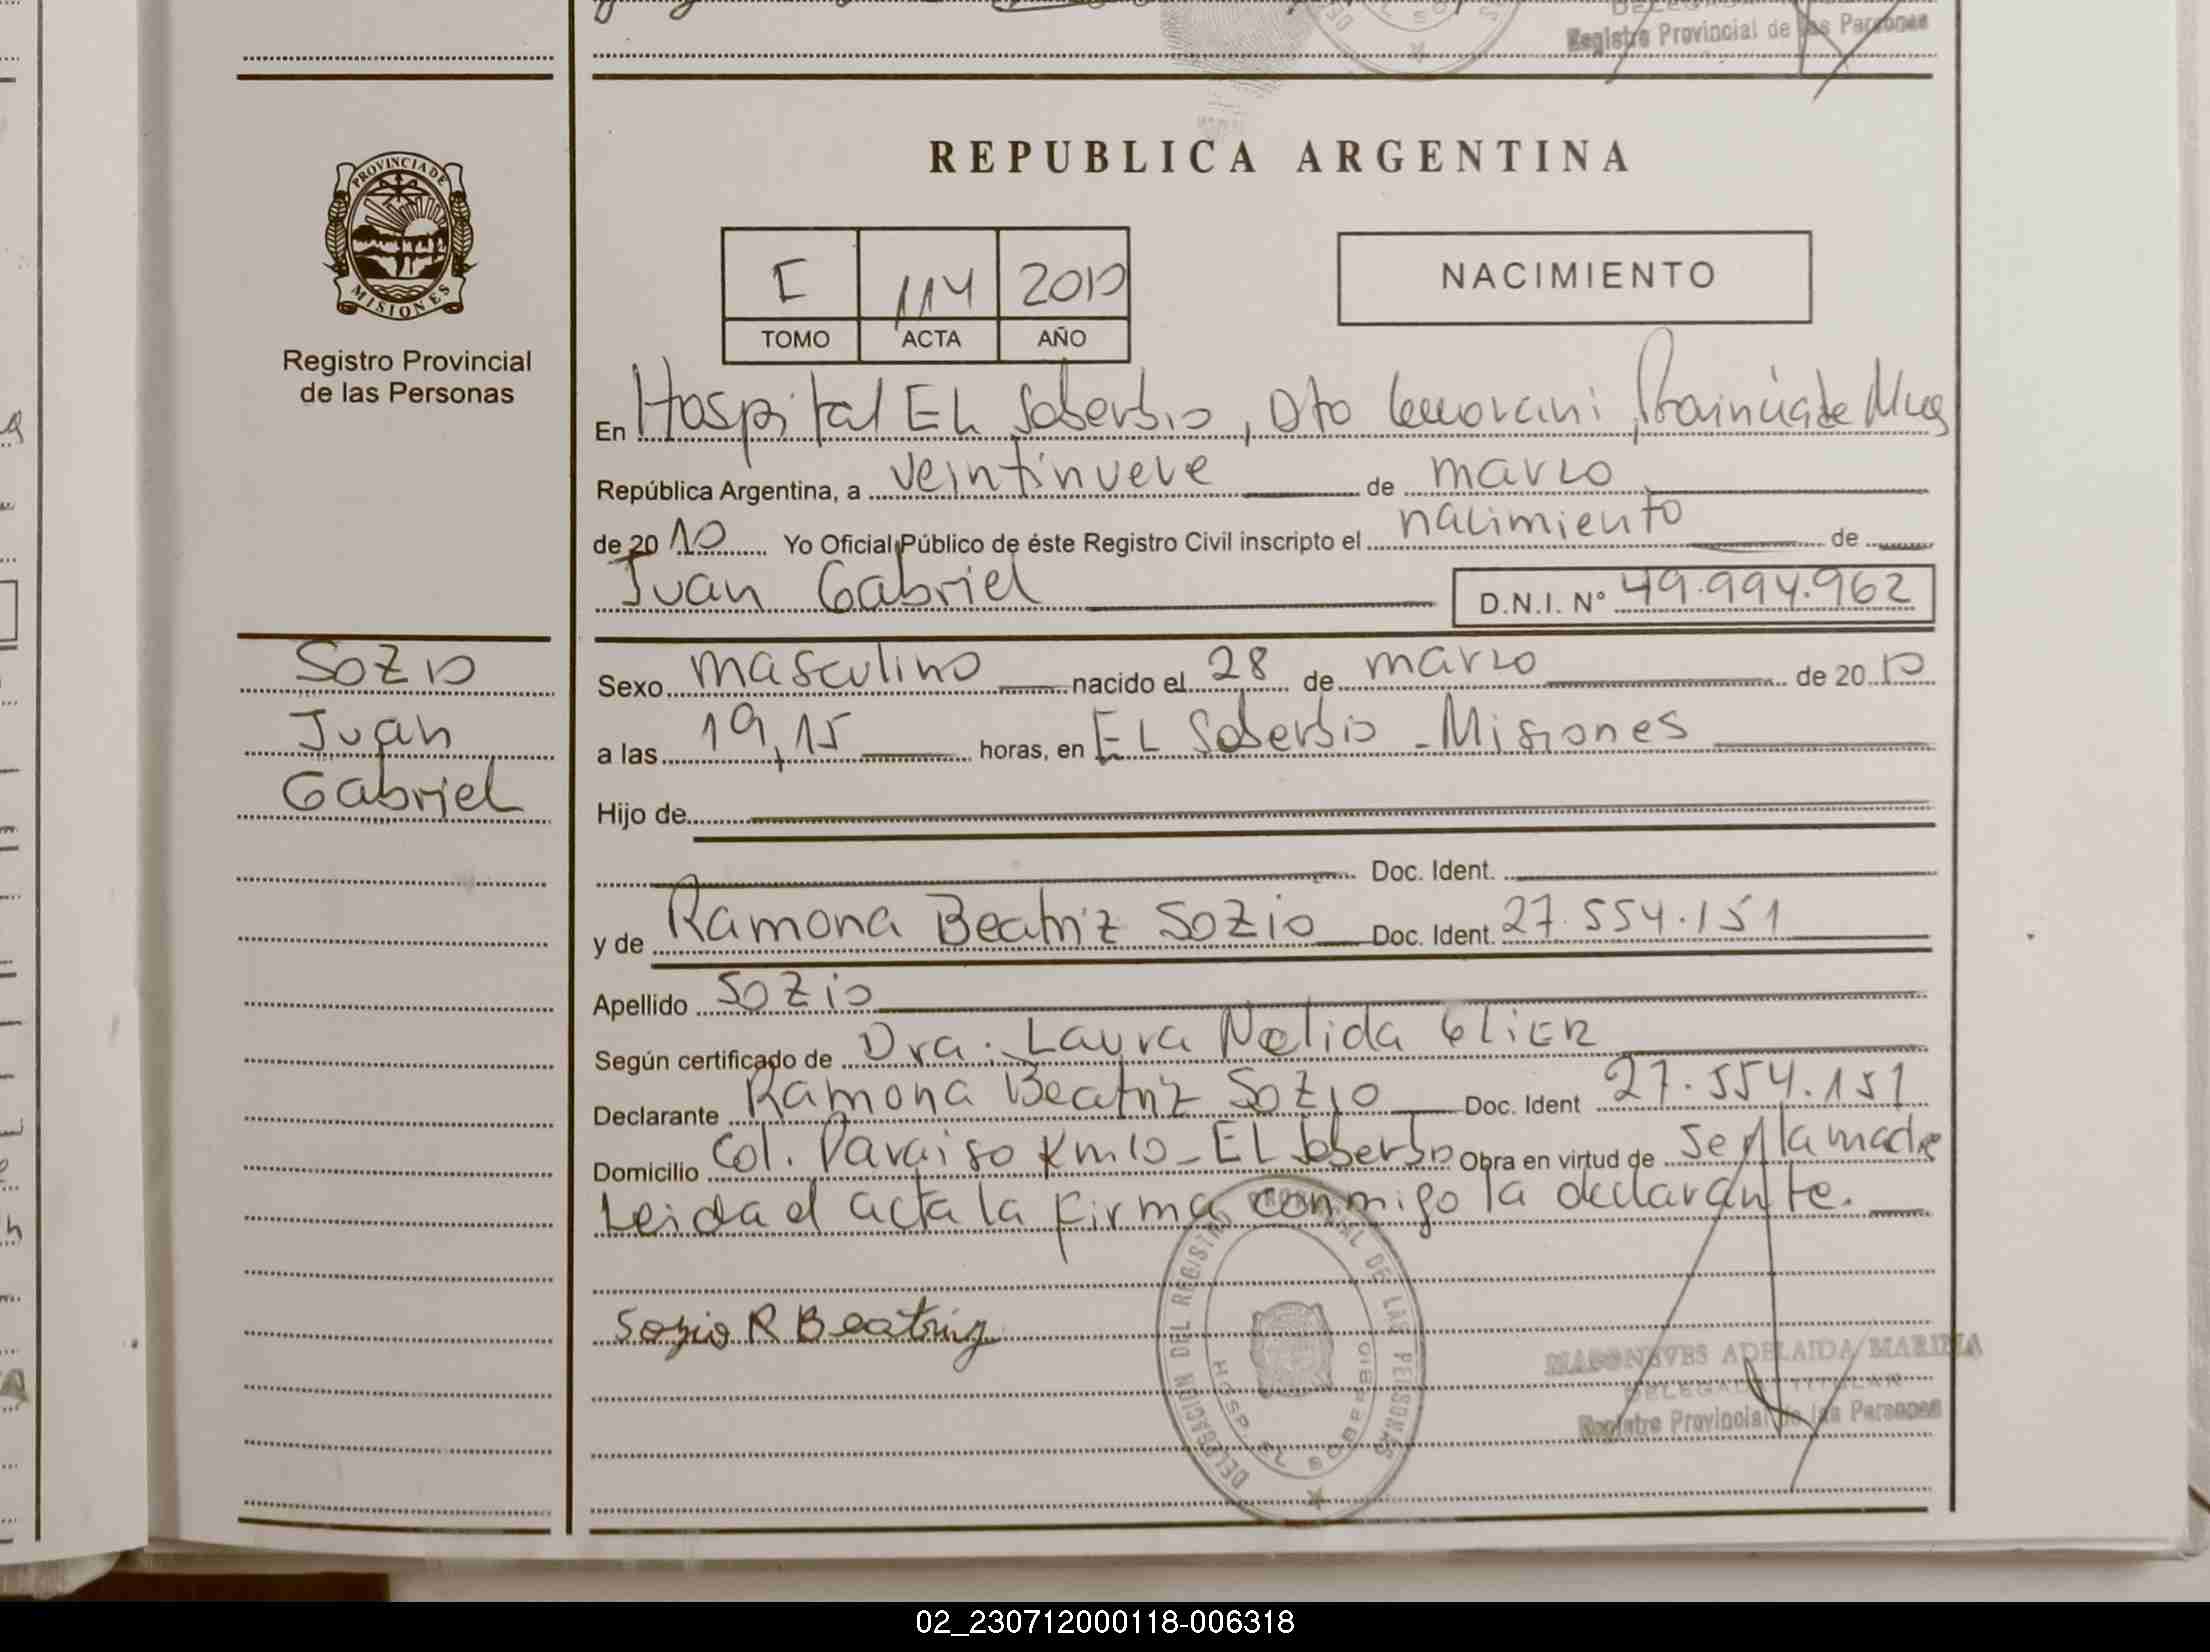 Registro Provincial de las Personas
REPUBLICA ARGENTINA
PROVINCIA DE
MISIONES
Registro Provincial
de las Personas
I 114 2010
TOMO ACTA AÑO
NACIMIENTO
En Hospital EL Soberbio, Dto Guarani, Provincia de Mnes
República Argentina, a veintinueve de marzo
de 20 10 Yo Oficial Público de éste Registro Civil inscripto el nacimiento de
Juan Gabriel D.N.I. Nº 49.994.962
Sozio
Juan
Gabriel
Sexo masculino nacido el 28 de marzo de 20 10
a las 19,15 horas, en EL Soberbio - Misiones
Hijo de
Doc. Ident.
y de Ramona Beatriz Sozio Doc. Ident. 27.554.151
Apellido Sozio
Según certificado de Dra. Laura Nelida
Declarante Ramona Beatriz Sozio Doc. Ident 27.554.151
Domicilio Col. Paraiso Km 10 - EL Soberbio Obra en virtud de ser la madre
Leida el acta la firma conmigo la declarante.
Sozio R Beatriz
DELEGACION DEL REGISTRO PROVINCIAL DE LAS PERSONAS
HOSP. EL SOBERBIO
ADELAIDA MARINA
DELEGADA TITULAR
Registro Provincial de las Personas
02_230712000118-006318